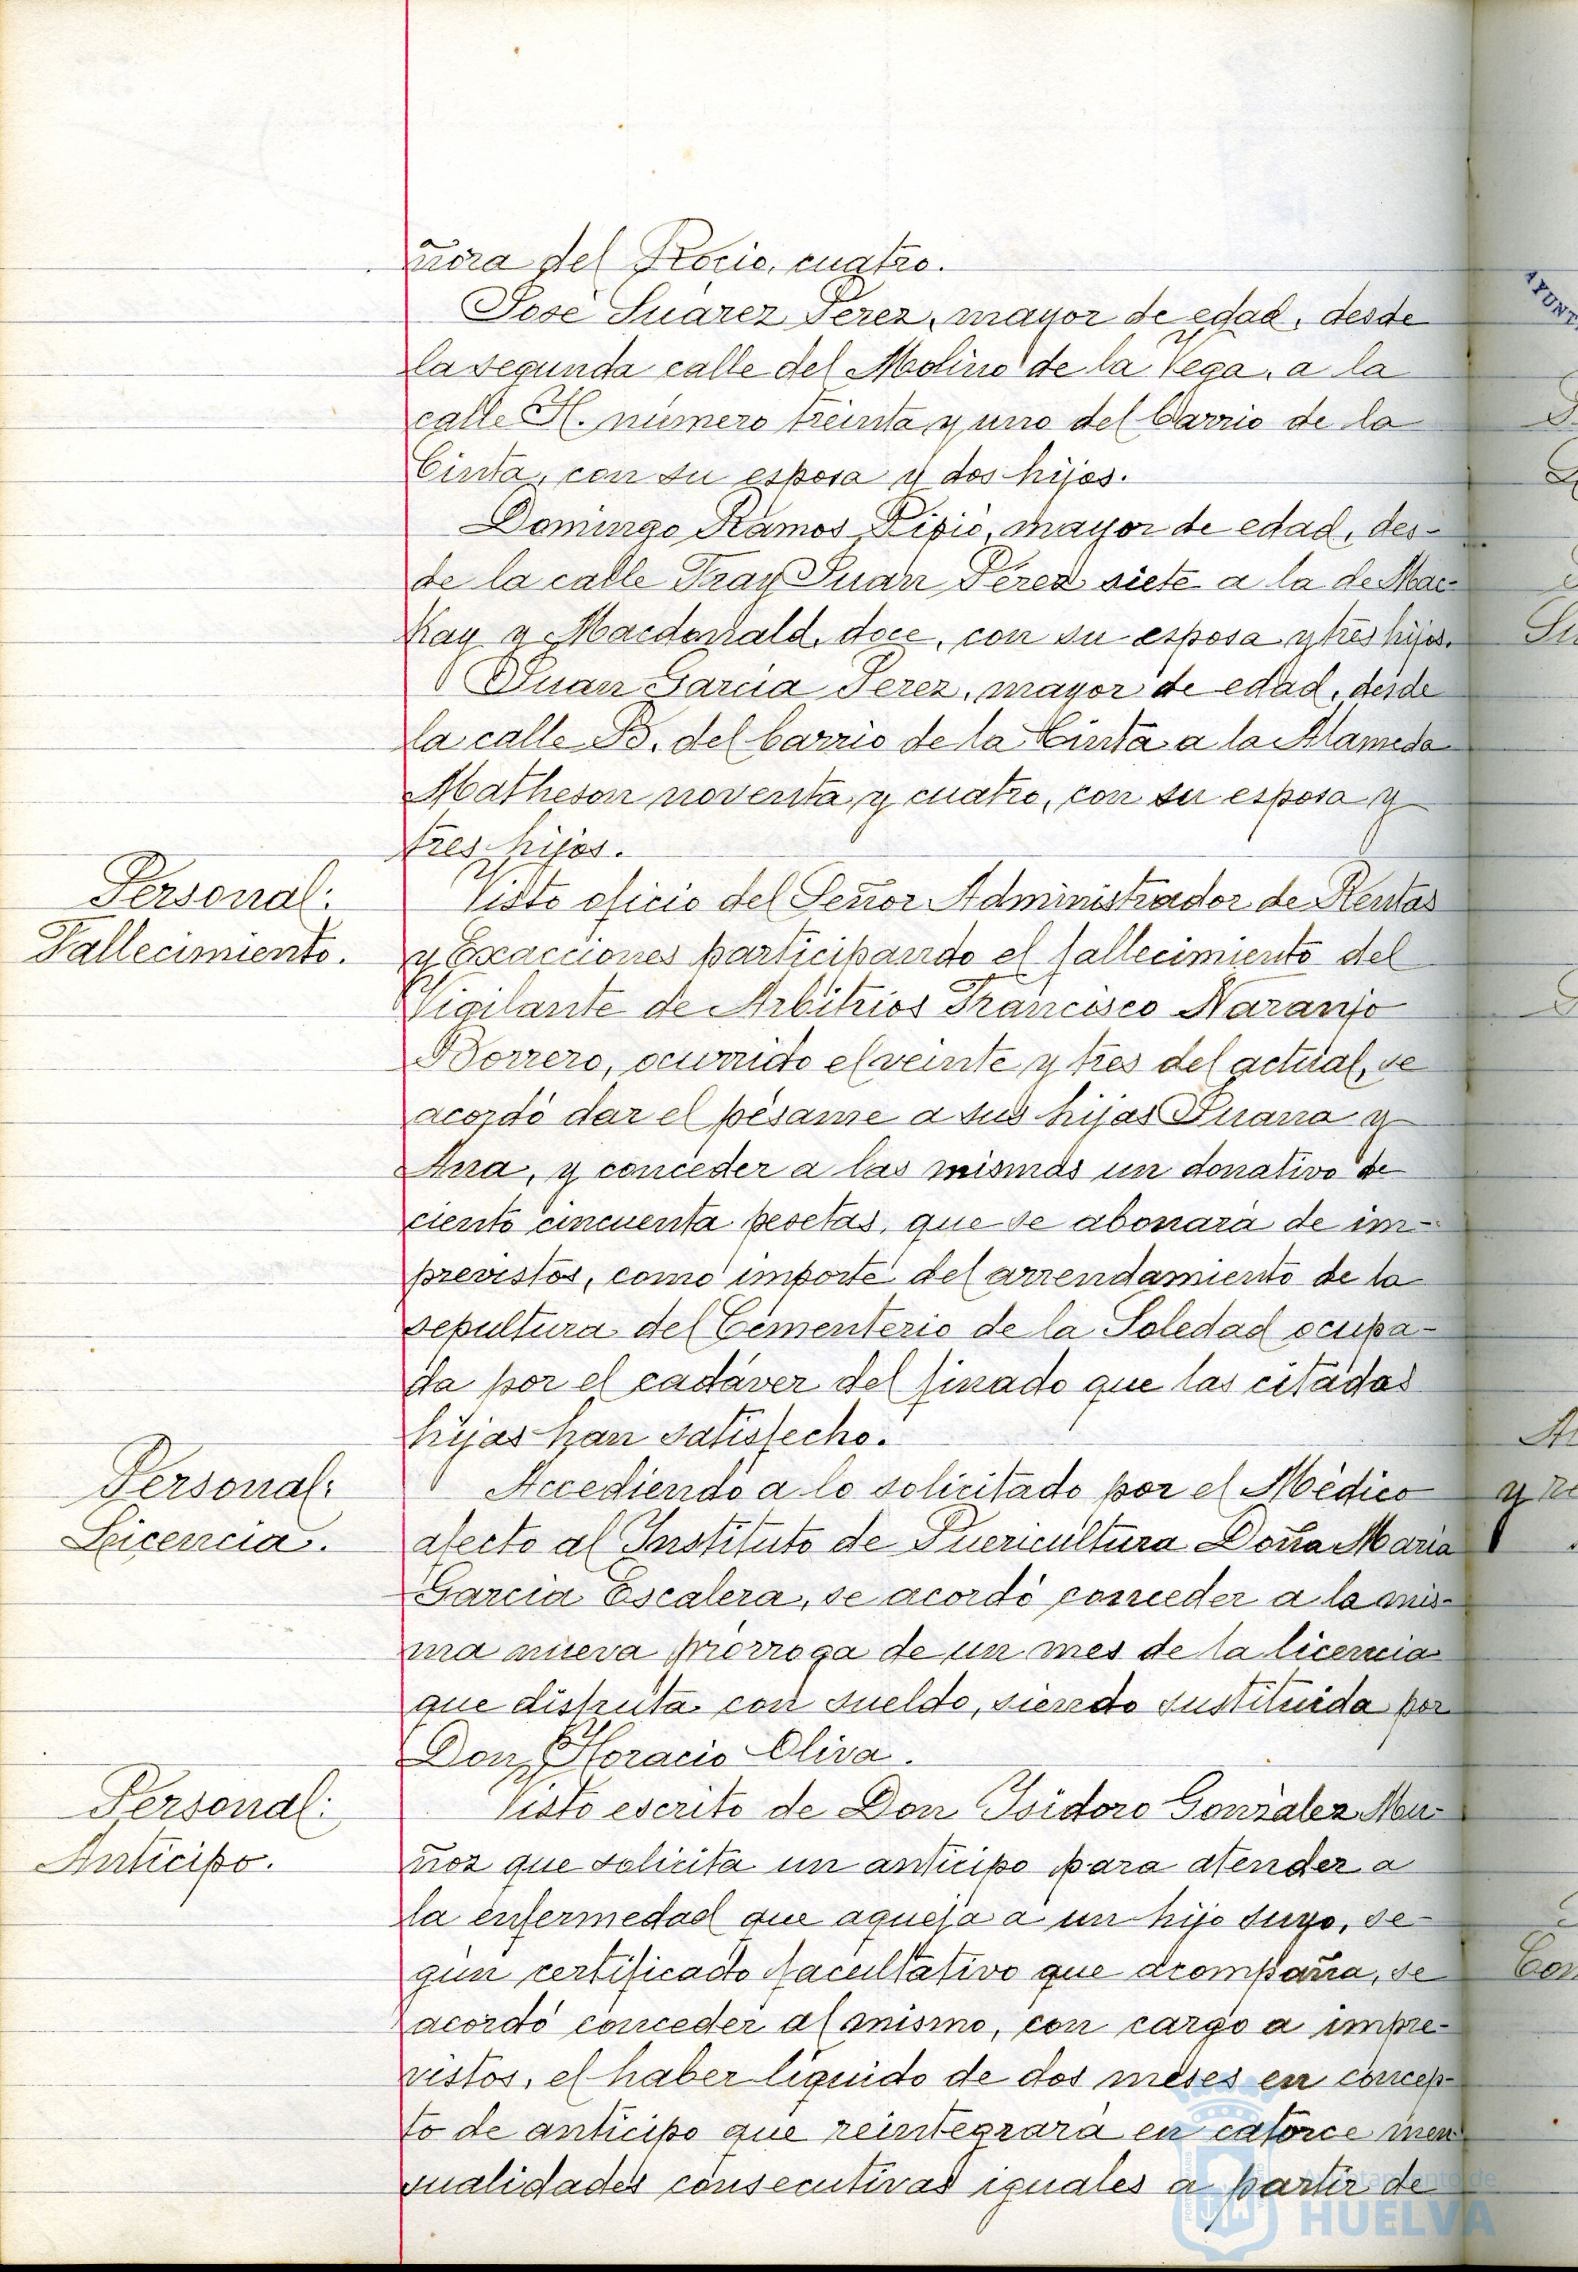 ñora del Rocio, cuatro.
José Suárez Pérez, mayor de edad, desde
la segunda calle del Molino de la Vega, a la
calle H. número treinta y uno del barrio de la
Cinta, con su esposa y dos hijos.
Domingo Ramos Pipió, mayor de edad, des-
de la calle Fray Juan Pérez siete a la de Mac-
Kay y Macdonald, doce, con su esposa y tres hijos.
Juan García Perez, mayor de edad, desde
la calle B. del barrio de la Cinta a la Alameda
Matheson noventa y cuatro, con su esposa y
tres hijos.
Personal:
Fallecimiento.
Visto oficio del Señor Administrador de Rentas
y Exacciones participando el fallecimiento del
Vigilante de Arbitrios Francisco Naranjo
Borrero, ocurrido el veinte y tres del actual, se
acordó dar el pésame a sus hijas Juana y
Ana, y conceder a las mismas un donativo de
ciento cincuenta pesetas, que se abonará de im-
previstos, como importe del arrendamiento de la
sepultura del Cementerio de la Soledad ocupa-
da por el cadáver del finado que las citadas
hijas han satisfecho.
Personal:
Licencia.
Accediendo a lo solicitado por el Médico
afecto al Instituto de Puericultura Doña Maria
García Escalera, se acordó conceder a la mis-
ma nueva prórroga de un mes de la licencia
que disfruta con sueldo, siendo sustituida por
Don Horacio Oliva.
Personal:
Anticipo.
Visto escrito de Don Isidoro González Mu-
ñoz que solicita un anticipo para atender a
la enfermedad que aqueja a un hijo suyo, se-
gún certificado facultativo que acompaña, se
acordó conceder al mismo, con cargo a impre-
vistos, el haber líquido de dos meses en concep-
to de anticipo que reintegrará en catorce men
sualidades consecutivas iguales a partir de
Ayuntamiento de
HUELVA